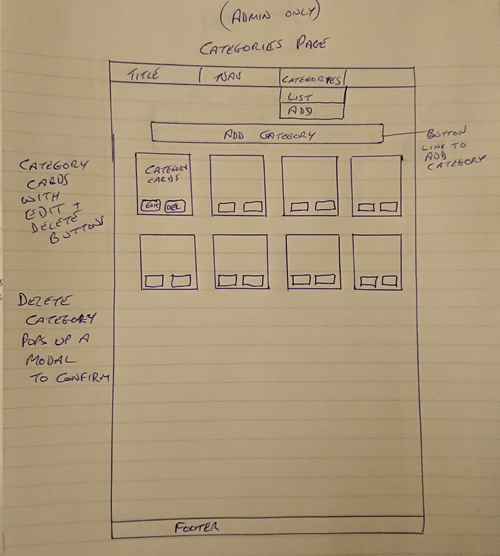 (ADMIN ONLY)
CATEGORIES PAGE
TITLE
NAV
CATEGORIES
LIST
ADD
ADD CATEGORY
BUTTON
LINK TO
ADD
CATEGORY
CATEGORY
CARDS
WITH
EDIT +
DELETE
BUTTONS
CATEGORY
CARDS
EDIT
DEL
DELETE
CATEGORY
POPS UP A
MODAL
TO CONFIRM
FOOTER